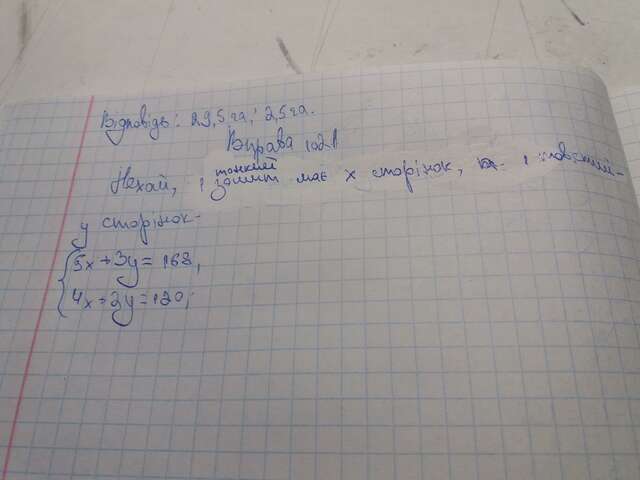 Відповідь: 29,5 га; 2,5 га.
Вправа 1021
Нехай, 1 тонкий зошит має x сторінок, 1
y сторінок.
5x + 3y = 168,
4x + 2y = 120,